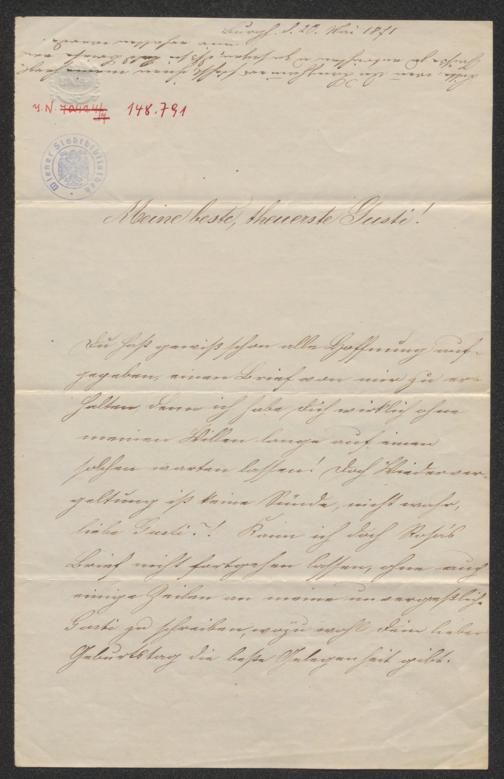 d. 20. Mai 1871
J. N. 70424/III 148.791
Wiener Stadtbibliothek
Meine beste, theuerste Gusti!
Du hast gewiß schon alle Hoffnung auf-
gegeben, einen Brief von mir zu er-
halten denn ich habe dich wirklich ohne
meinen Willen lange auf einen
solchen warten lassen! Doch Wiederver-
geltung ist keine Sünde, nicht wahr,
liebe Gusti?! Kann ich doch Rosa's
Brief nicht fortgehen lassen, ohne auch
einige Zeilen an meine unvergeßliche
Gusti zu schreiben, wozu wohl dein lieber
Geburtstag die beste Gelegenheit gibt.